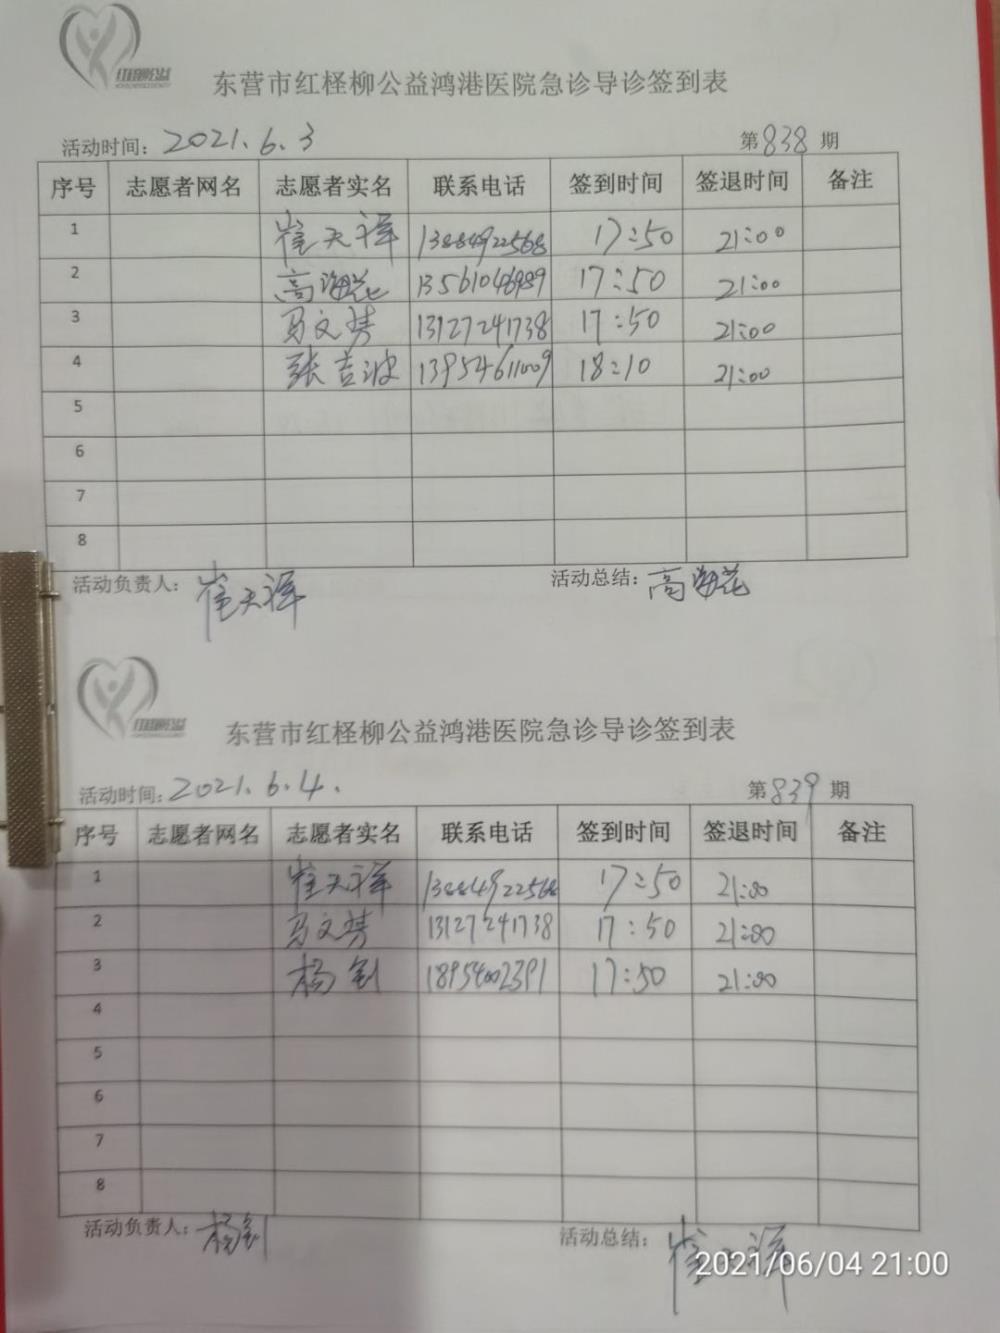 红柽柳公益
东营市红柽柳公益鸿港医院急诊导诊签到表
活动时间：2021.6.3 第838期
序号 志愿者网名 志愿者实名 联系电话 签到时间 签退时间 备注
1 崔天祥 13884922568 17:50 21:00
2 高海花 13561046989 17:50 21:00
3 马文梦 13127241738 17:50 21:00
4 张吉波 13954611009 18:10 21:00
5
6
7
8
活动负责人：崔天祥 活动总结：高海花
红柽柳公益
东营市红柽柳公益鸿港医院急诊导诊签到表
活动时间：2021.6.4. 第839期
序号 志愿者网名 志愿者实名 联系电话 签到时间 签退时间 备注
1 崔天祥 13884922568 17:50 21:00
2 马文梦 13127241738 17:50 21:00
3 杨剑 18954002391 17:50 21:00
4
5
6
7
8
活动负责人：杨剑 活动总结：崔天祥
2021/06/04 21:00